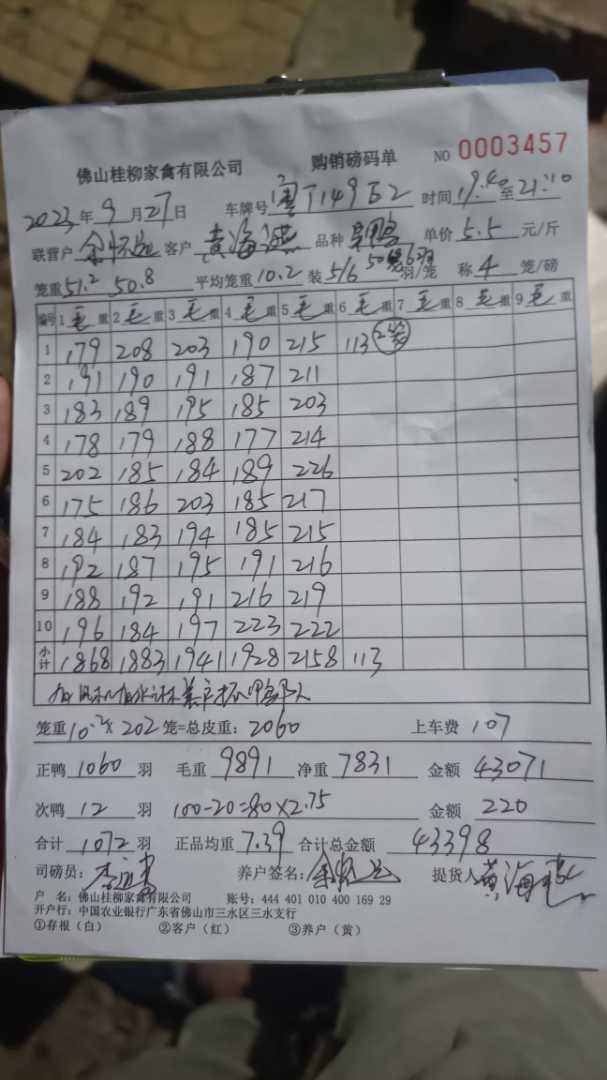 佛山桂柳家禽有限公司 购销磅码单 NO 0003457
2023年9月27日 车牌号 粤T149E2 时间19:40至21:10
联营户 客户 黄海 品种 鸭 单价5.5元/斤
笼重51.2 50.8 平均笼重10.2装5/6 羽/笼 称4笼/磅
编号 1毛重 2毛重 3毛重 4毛重 5毛重 6毛重 7毛重 8毛重 9毛重
1 179 208 203 190 215 113 2笼
2 191 190 191 187 211
3 183 189 195 185 203
4 178 179 188 177 214
5 202 185 184 189 226
6 175 186 203 185 217
7 184 183 194 185 215
8 192 187 195 191 216
9 188 192 191 216 219
10 196 184 197 223 222
小计 1868 1883 1941 1928 2158 113
笼重10.2×202笼=总皮重：2060 上车费107
正鸭1060羽 毛重9891 净重7831 金额43071
次鸭12羽 100-20=80×2.75 金额220
合计1072羽 正品均重7.39 合计总金额43398
司磅员： 养户签名： 提货人黄海
户 名：佛山桂柳家禽有限公司 账号：444 401 010 400 169 29
开户行：中国农业银行广东省佛山市三水区三水支行
①存根（白） ②客户（红） ③养户（黄）